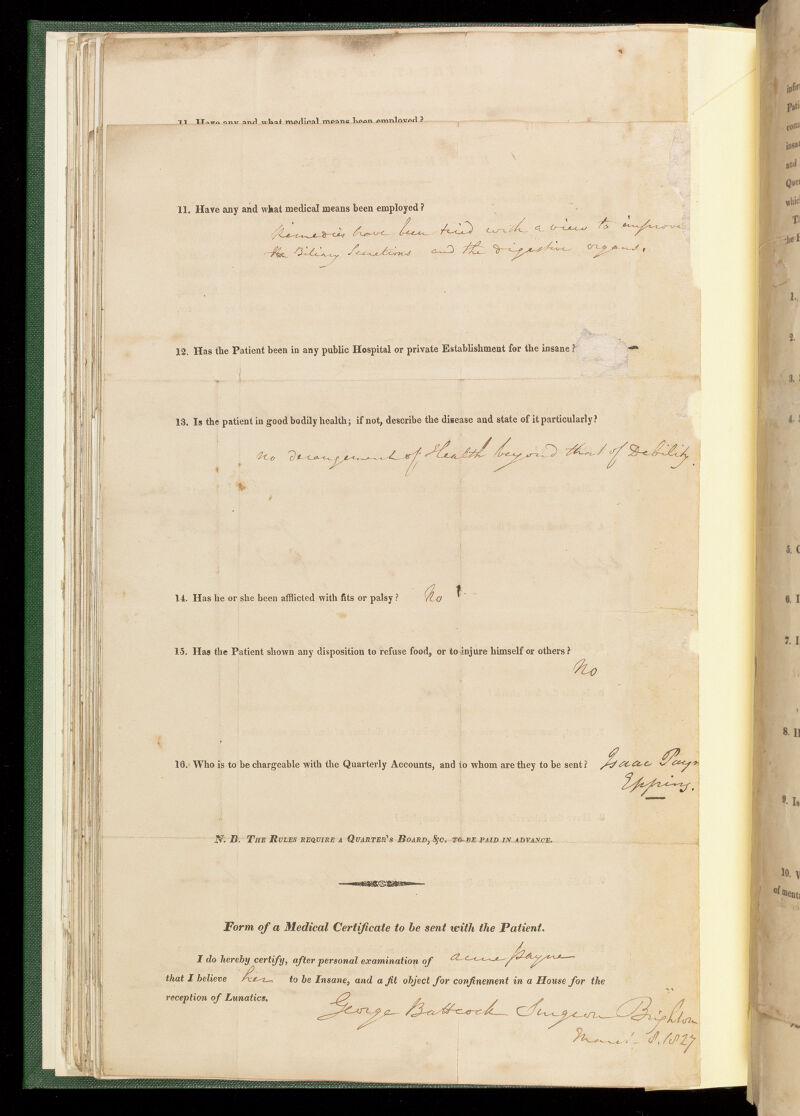 11. Have any and what medical means been employed ?
11. Have any and what medical means been employed ?
Remedies have been tried with a view to improve
the Biliary Secretions and the digestive organs.
12. Has the Patient been in any public Hospital or private Establishment for the insane ?
13. Is the patient in good bodily health; if not, describe the disease and state of it particularly ?
no derangement of Health beyond that of Debility.
14. Has he or she been afflicted with fits or palsy ? No
15. Has the Patient shown any disposition to refuse food, or to injure himself or others ?
No
16. Who is to be chargeable with the Quarterly Accounts, and to whom are they to be sent ? Isaac Payn
Epping.
N. B. THE RULES REQUIRE A QUARTER'S BOARD, &c. TO BE PAID IN ADVANCE.
Form of a Medical Certificate to be sent with the Patient.
I do hereby certify, after personal examination of Anne Payne
that I believe her to be Insane, and a fit object for confinement in a House for the
reception of Lunatics.
George Battcock Surgeon Brighton
8. 1827
1.
2.
3.
5. C
6. I
7. I
8. H
9. Is
10.